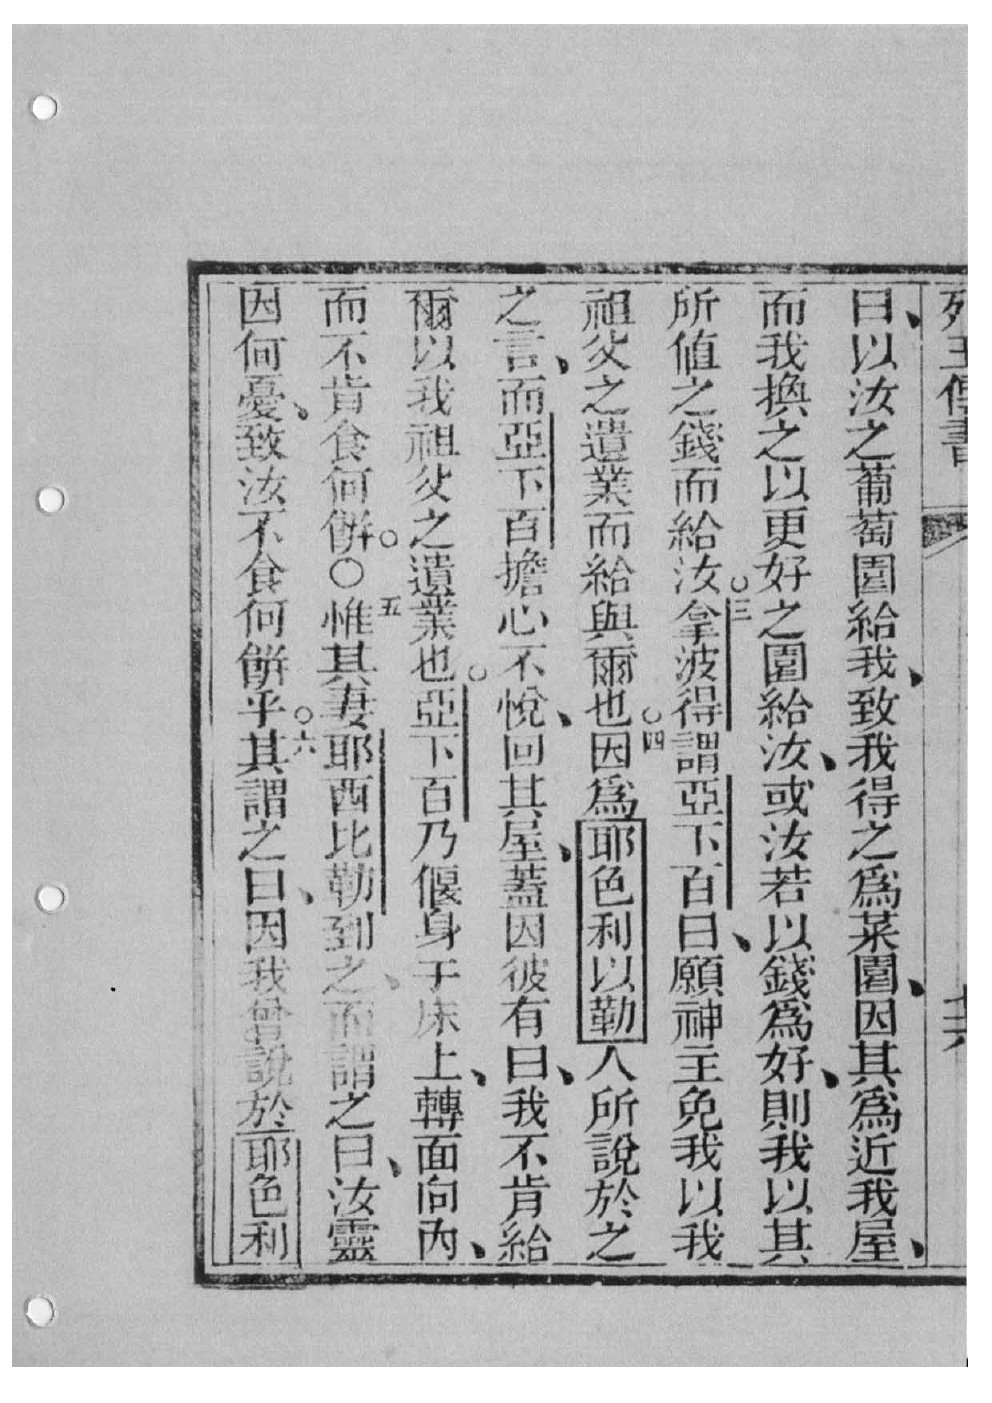 列王傳書
曰、以汝之葡萄園給我、致我得之爲菜園、因其爲近我屋、
而我換之以更好之園給汝、或汝若以錢爲好、則我以其
所值之錢而給汝○三拿波得謂亞下百曰、願神主免我以我
祖父之遺業而給與爾也○四因爲耶色利以勒人所說於之
之言、而亞下百擔心不悅、回其屋、蓋因彼有曰、我不肯給
爾以我祖父之遺業也○亞下百乃偃身于床上、轉面向內、
而不肯食何餅○〇五惟其妻耶西比勒到之、而謂之曰、汝靈
因何憂、致汝不食何餅乎○六其謂之曰、因我曾說於耶色利